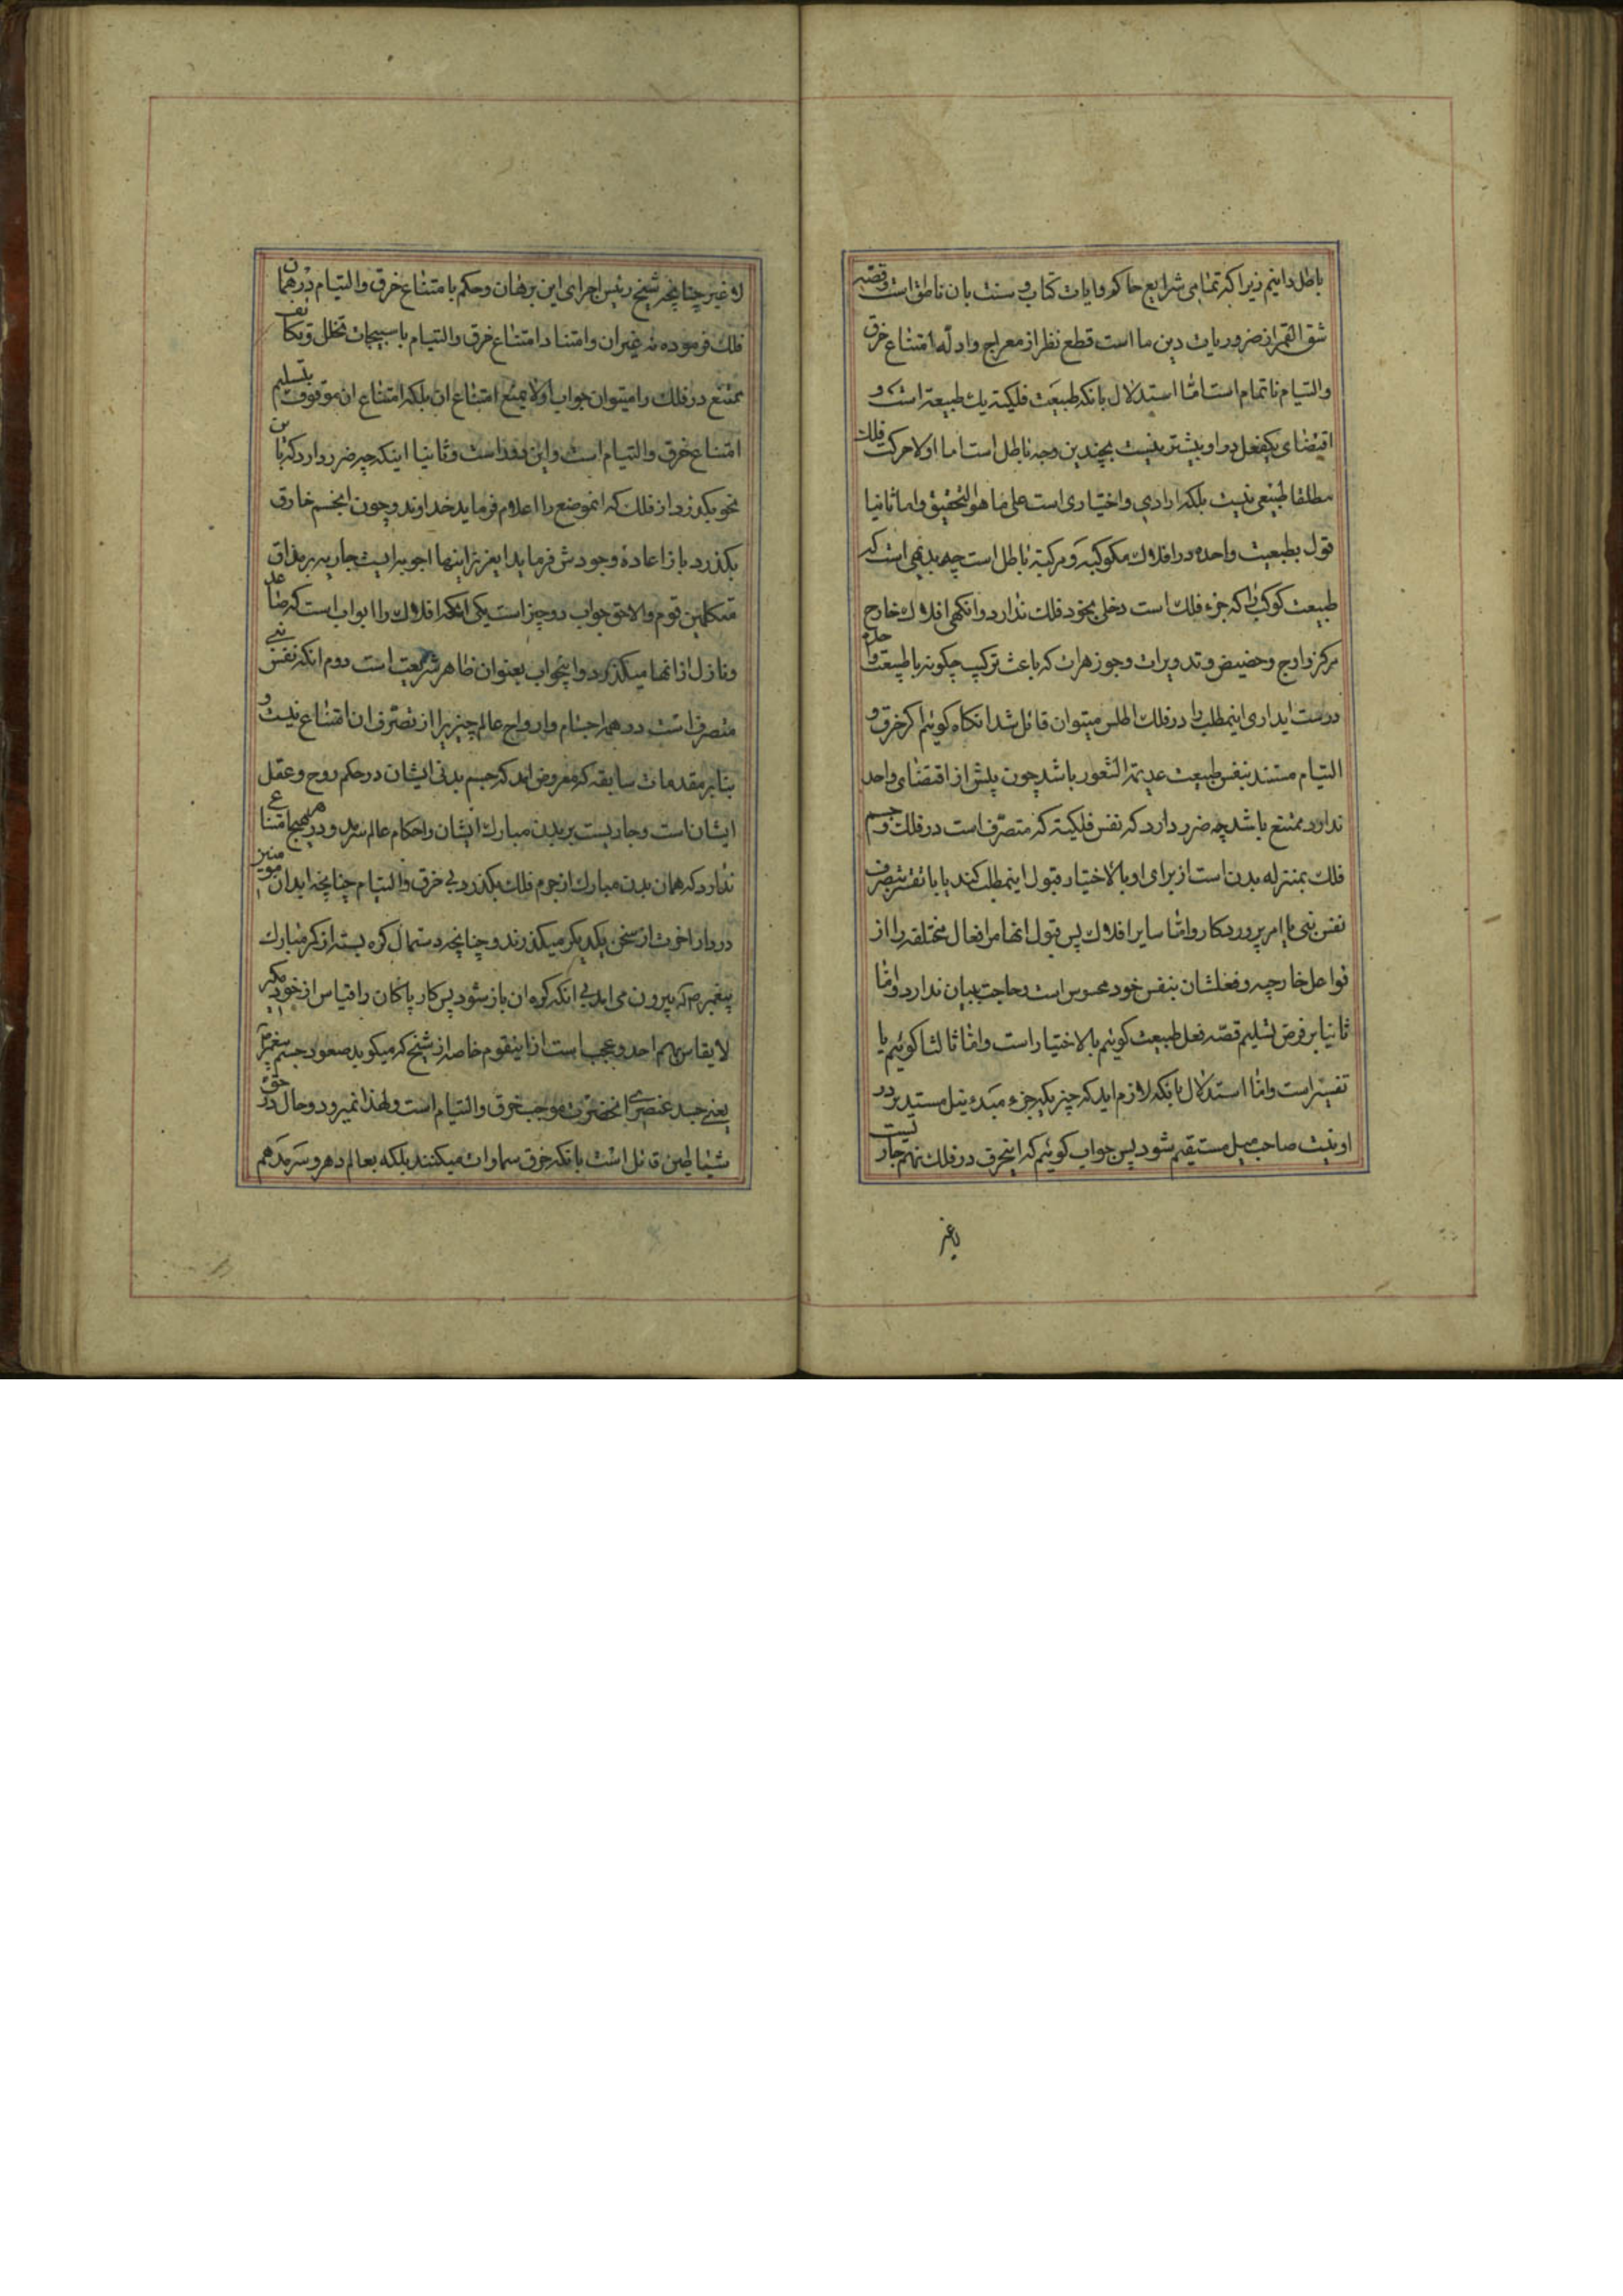 باطل دانیم زیرا که تمامی شرایع حاکم و ایات کتاب و سنت بان ناطق است و قصّه
شق القمر از ضروریات دین ما است قطع نظر از معراج و ادلّه امتناع خرق
و التیام ناتمام است امّا استدلال بانکه طبیعت فلکیّه یك طبیعة است و
اقتضای یکفعل در او بیشتر نیست بچندین وجه باطل است اما اولا حرکت فلك
مطلقا طبیعی نیست بلکه ارادی و اختیاری است علی ما هو التحقیق و اما ثانیا
قول بطبیعت واحده در افلاك مکوکبه و مرکبّه باطل است چه بدیهی است که
طبیعت کوکب را که جزء فلك است دخلی بخود فلك ندارد وانکهی افلاك خارج
مرکز و اوج و حضیض و تدویرات و جوزهرات که باعث ترکیب چکونه با طبیعت واحده
درست ایداری اینمطلب را در فلك اطلس میتوان قائل شد انکاه کوئیم اکر خرق و
التیام مستند بنفس طبیعت عدیمة الشعور باشد چون پیش از اقتضای واحد
ندارد ممتنع باشد چه ضرر دارد که نفس فلکیّه که متصرّف است در فلك و جسم
فلك بمنزله بدن است از برای او بالاختیار قبول اینمطلب کند یا با نفس بتصرف
نفس نبی با امر پروردکار و امّا سایر افلاك پس قبول انها مر افعال مختلفه را از
فواعل خارجه و فعلشان بنفس خود محسوس است و حاجت ببیان ندارد و امّا
ثانیا بر فرض تسلیم قصّه فعل طبیعت کوئیم بالاختیار است و امّا ثالثا کوئیم با
تفسیر است و امّا استدلال بانکه لازم اید که چیزیکه جزء مبدء میل مستدیر در
او نیست صاحب میل مستقیم شود پس جواب کوئیم که اینحرف در فلك نهم جاریست
لاغیر
لا غیر چنانچه شیخ رئیس اجرای این برهان و حکم بامتناع خرق و التیام در همان
فلك فرموده نه غیر ان و امتناد امتناع خرق و التیام با تخلل و تکاثف
ممتنع در فلك را میتوان جواب اولا بمنع امتناع ان بلکه امتناع ان موقوف بتسلیم
امتناع خرق و التیام است و این دور است و ثانیا اینکه چه ضرر دارد که باین
نحو بکذرد از فلك که انموضع را اعدام فرماید خداوند و چون انجسم خارق
بکذرد باز اعادهٔ وجودش فرماید ایعزیز اینها اجوبه ایست جاریه بر مذاق
متکلمین قوم و الاحق جواب دو چیز است یکی انکه افلاك را ابواب است که صاعد
و نازل از انها میکذرد و اینجواب بعنوان ظاهر شریعت است دوم انکه نفس نبی
متصرف است در همه اجسام و ارواح عالم چیزیرا از تصرف ان امتناع نیست و
بنابر مقدمات سابقه که معروض امد که جسم بدنی ایشان در حکم روح و عقل
ایشان است و جاریست بر بدن مبارك ایشان احکام عالم سرمد و دهر هیچ امتناعی
ندارد که همان بدن مبارك از جرم فلك بکذرد بی خرق و التیام چنانچه ابدان مومنین
در دار اخرت از سخن یکدیکر میکذرند و چنانچه دستمال کره بسته از کمر مبارك
پیغمبر ص که بیرون می اید بی انکه کره ان باز شود پس کار پاکان را قیاس از خود مکیر
لا یقاس بهم احد و عجب است از اینقوم خاصه از شیخ که میکوید صعود جسم پیغمبر ص
یعنی جسد عنصری انحضرت موجب خرق و التیام است ولهذا نمیرود و حال در حق
شیاطین قائل است بانکه خرق سماوات میکنند بلکه بعالم دهر و سرمد هم